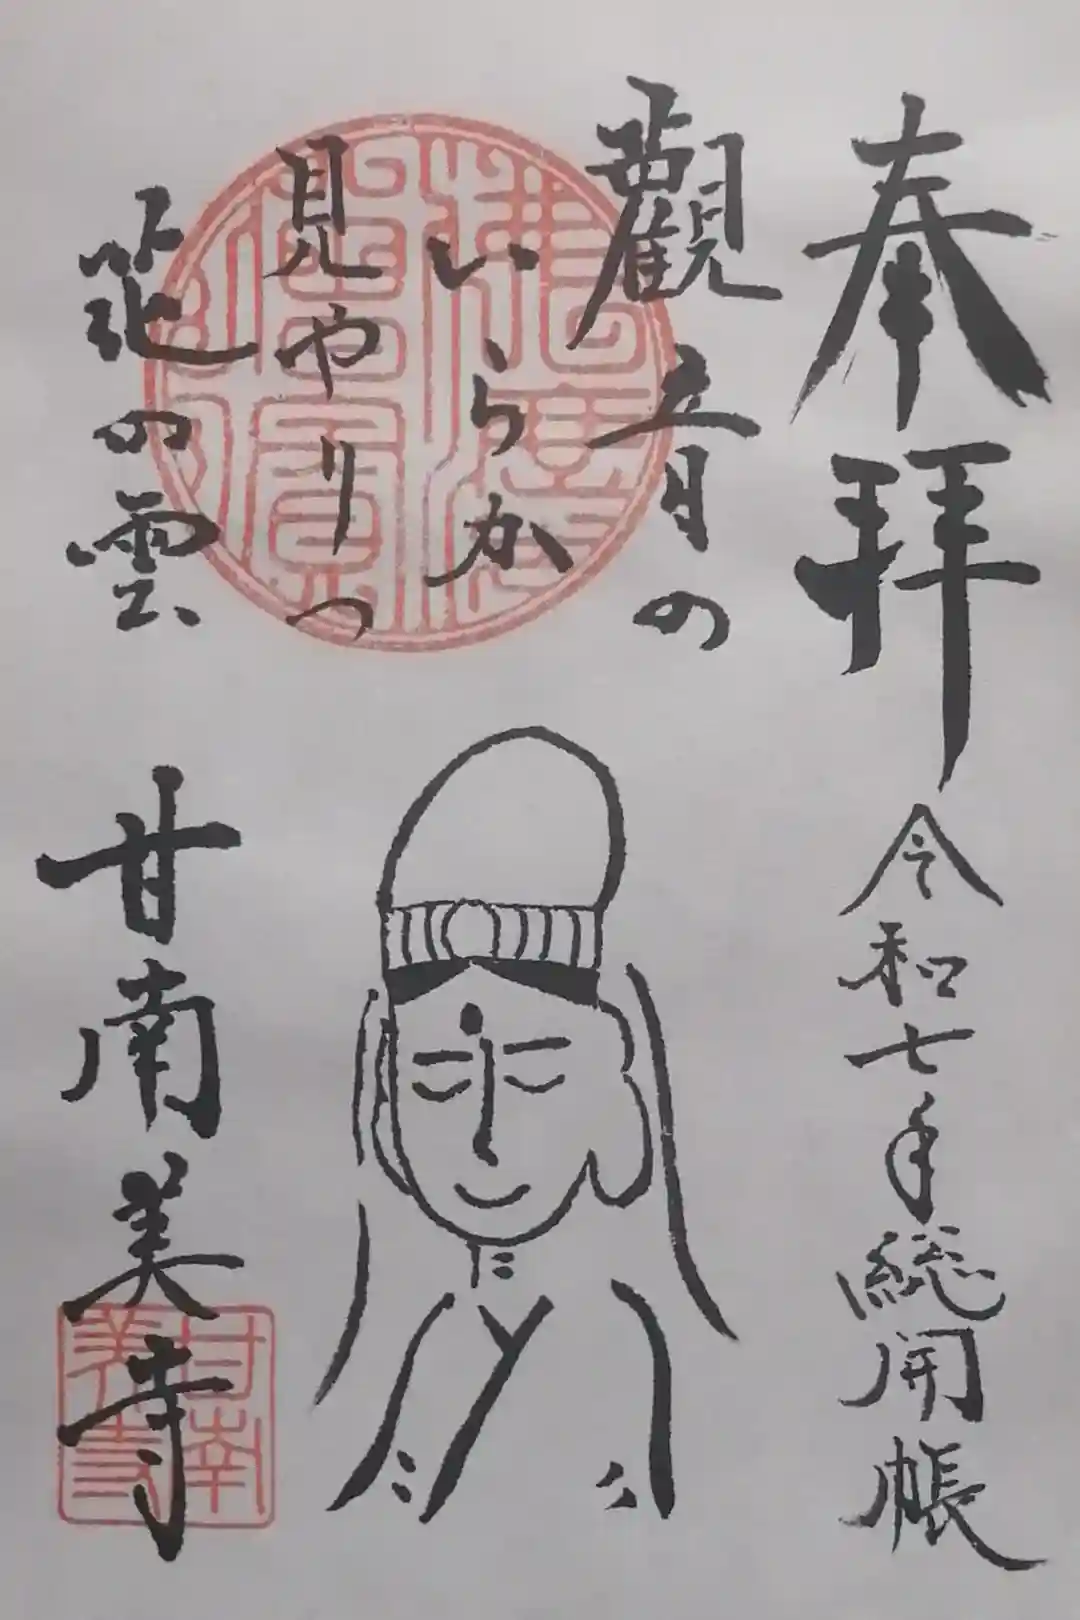 奉拝
令和七年総開帳
觀音の
いらか
見やりつ
花の雲
甘南美寺
甘南
美寺